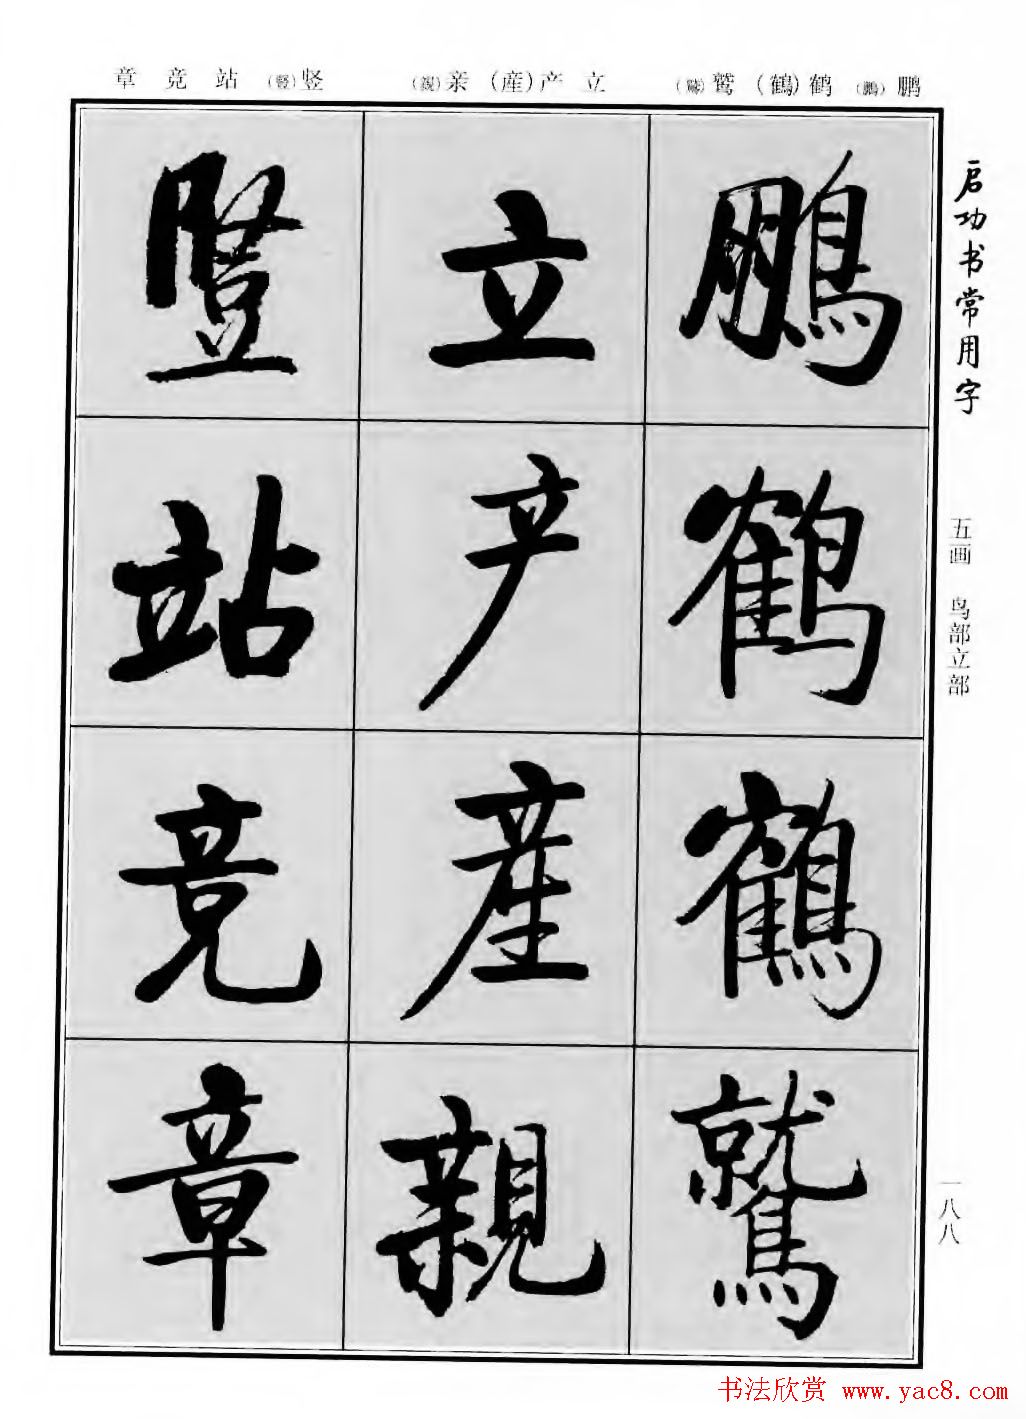 鹏（鵬）鹤（鶴）鹫（鷲）
立产（産）亲（親）
竖（豎）站竞章
启功书常用字
五画 鸟部立部
一八八
鵬鹤鶴鷲
立产産親
豎站竞章
书法欣赏 www.yac8.com